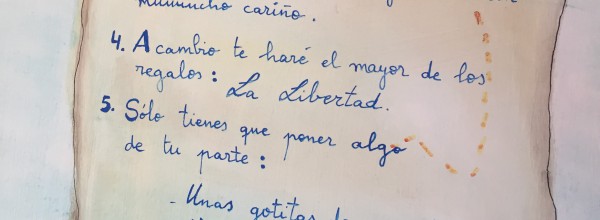 cariño.
4. A cambio te haré el mayor de los
regalos: La Libertad.
5. Sólo tienes que poner algo
de tu parte:
- Unas gotitas